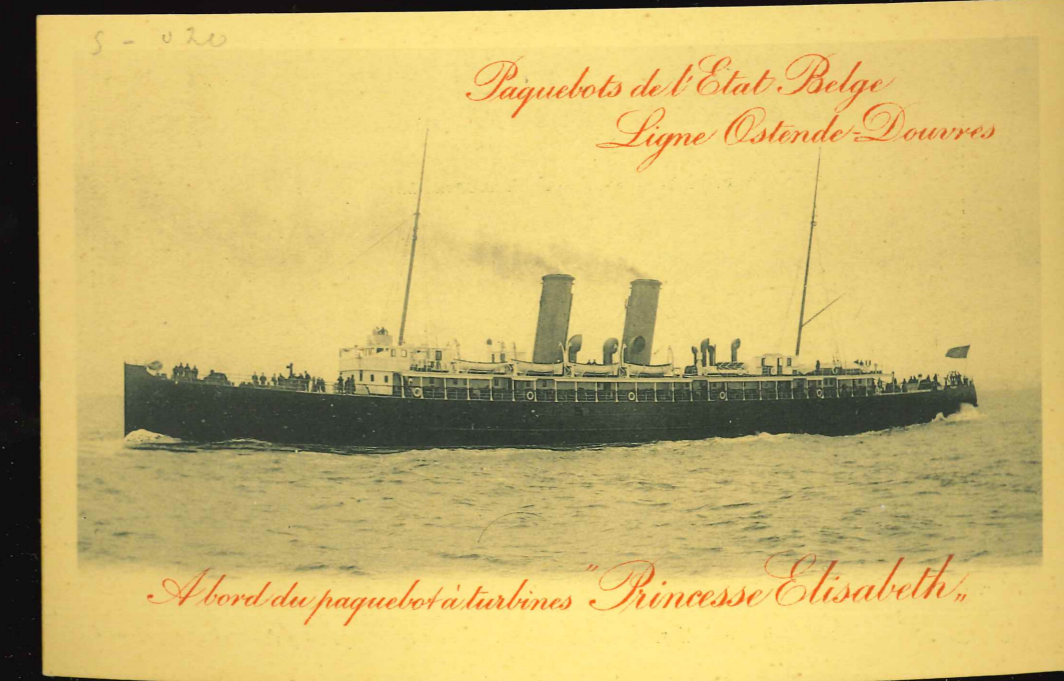 Paquebots de l'Etat Belge
Ligne Ostende-Douvres
A bord du paquebot à turbines "Princesse Elisabeth„